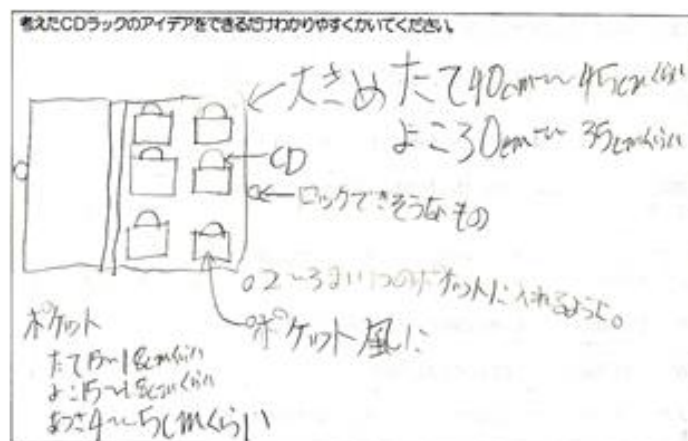 考えたCDラックのアイデアをできるだけわかりやすくかいてください。
大きめ たて40cm〜45cmくらい
よこ30cm〜35cmくらい
CD
ロックできそうなもの
○2〜3まい1つのポケットに入れるように。
ポケット風に
ポケット
たて15〜18cmくらい
よこ15〜18cmくらい
あつさ4〜5cmくらい